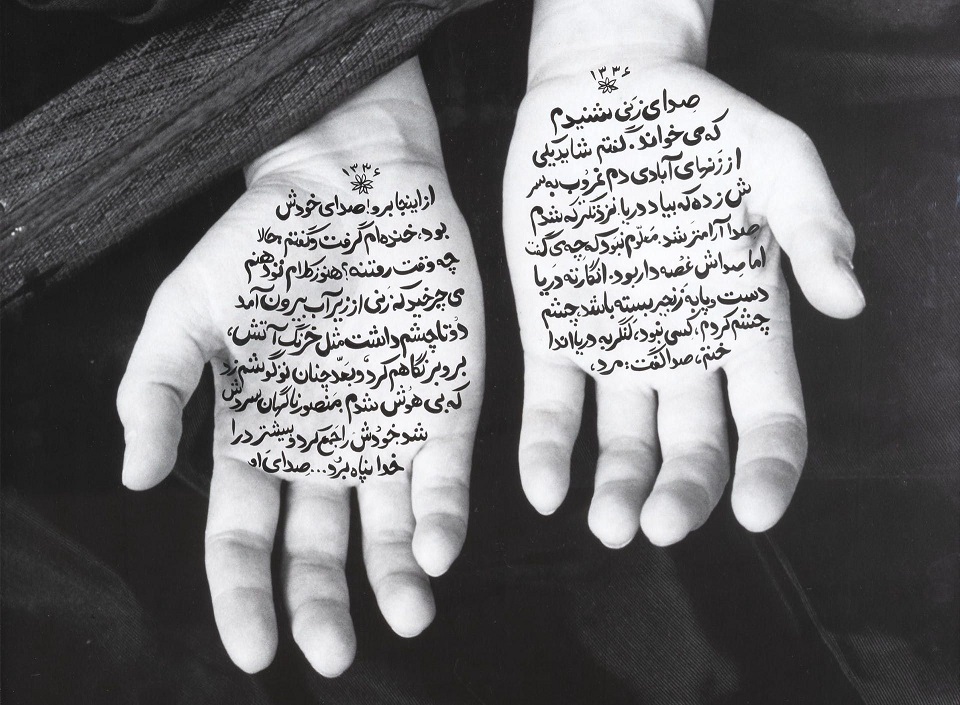 ۱۳۳۶
صدای زنی شنیدم
که می خواند. گفتم شاید یکی
از زنهای آبادی دم غروب به سر
ش زده که بیاد دریا. نزدیکتر که شدم
صدا آرامتر شد. معلوم نبود که چه می گفت
اما صداش غصه دار بود. انگار ته دریا
دست و پا به زنجیر بسته باشد. چشم
چشم کردم، کسی نبود، لنگر به دریا اندا
ختم، صدا گفت: مرد،
۱۳۳۶
از اینجا برو! صدای خودش
بود. خنده ام گرفت و گفتم حالا
چه وقت رفتنه؟ هنوز کلام تو دهنم
می چرخید که زنی از زیر آب بیرون آمد
دو تا چشم داشت مثل خرنگ آتش،
بر و بر نگاهم کرد و بعد چنان تو گوشم زد
که بی هوش شدم. منصور ناگهان سردش
شد خودش را جمع کرد و بیشتر در ا
خدا پناه برد... صدای او